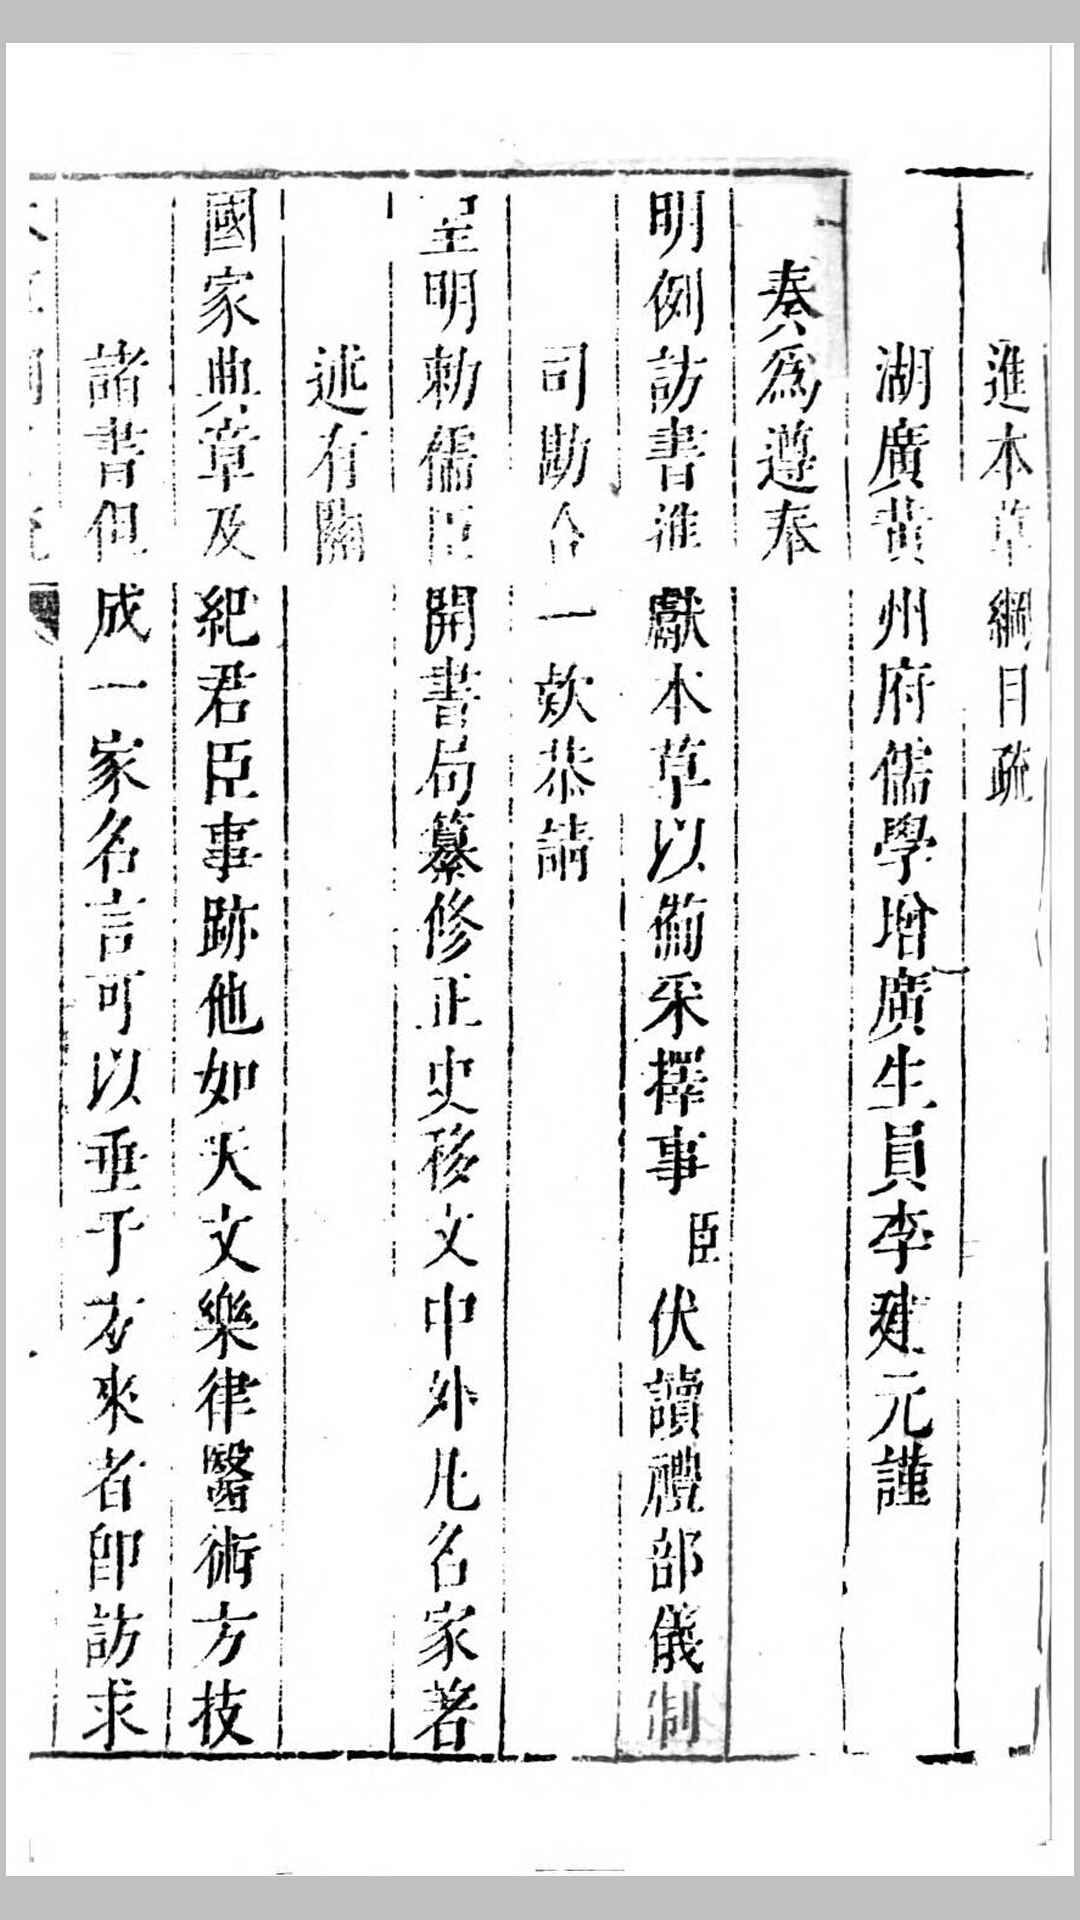 進本草綱目疏
湖廣黃州府儒學增廣生員李建元謹
奏爲遵奉
明例訪書進獻本草以備采擇事臣伏讀禮部儀制
司勘合一款恭請
聖明勅儒臣開書局纂修正史移文中外凡名家著
述有關
國家典章及紀君臣事跡他如天文樂律醫術方技
諸書但成一家名言可以垂于方來者卽訪求